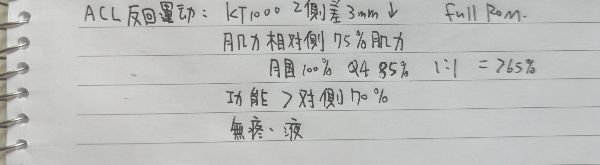 ACL 反回運动: KT1000 2側差3mm↓ full Rom.
肌力 相対側 75% 肌力
月国 100% Q4 85% 1:1 = >65%
功能 > 对側 70%
無疼、液